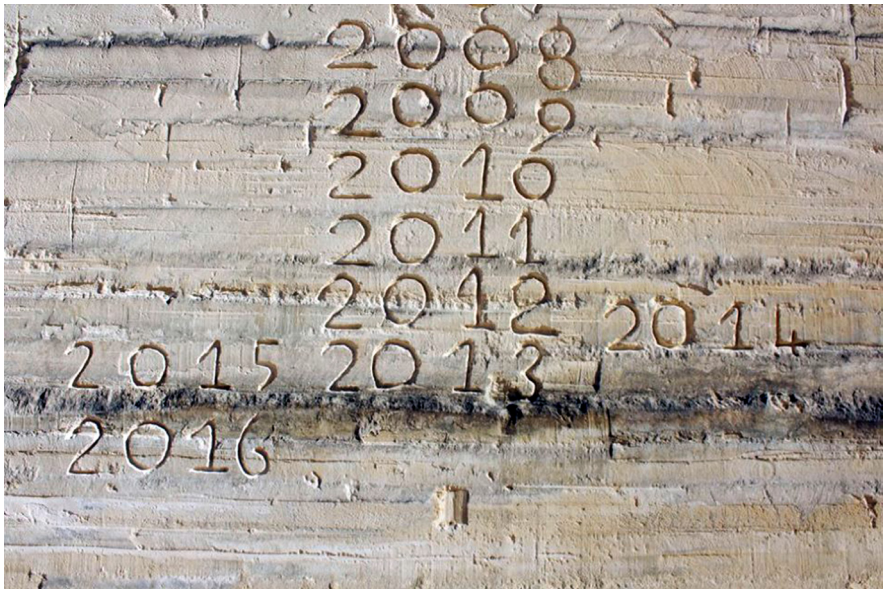 2008
2009
2010
2011
2012
2014
2015 2013
2016